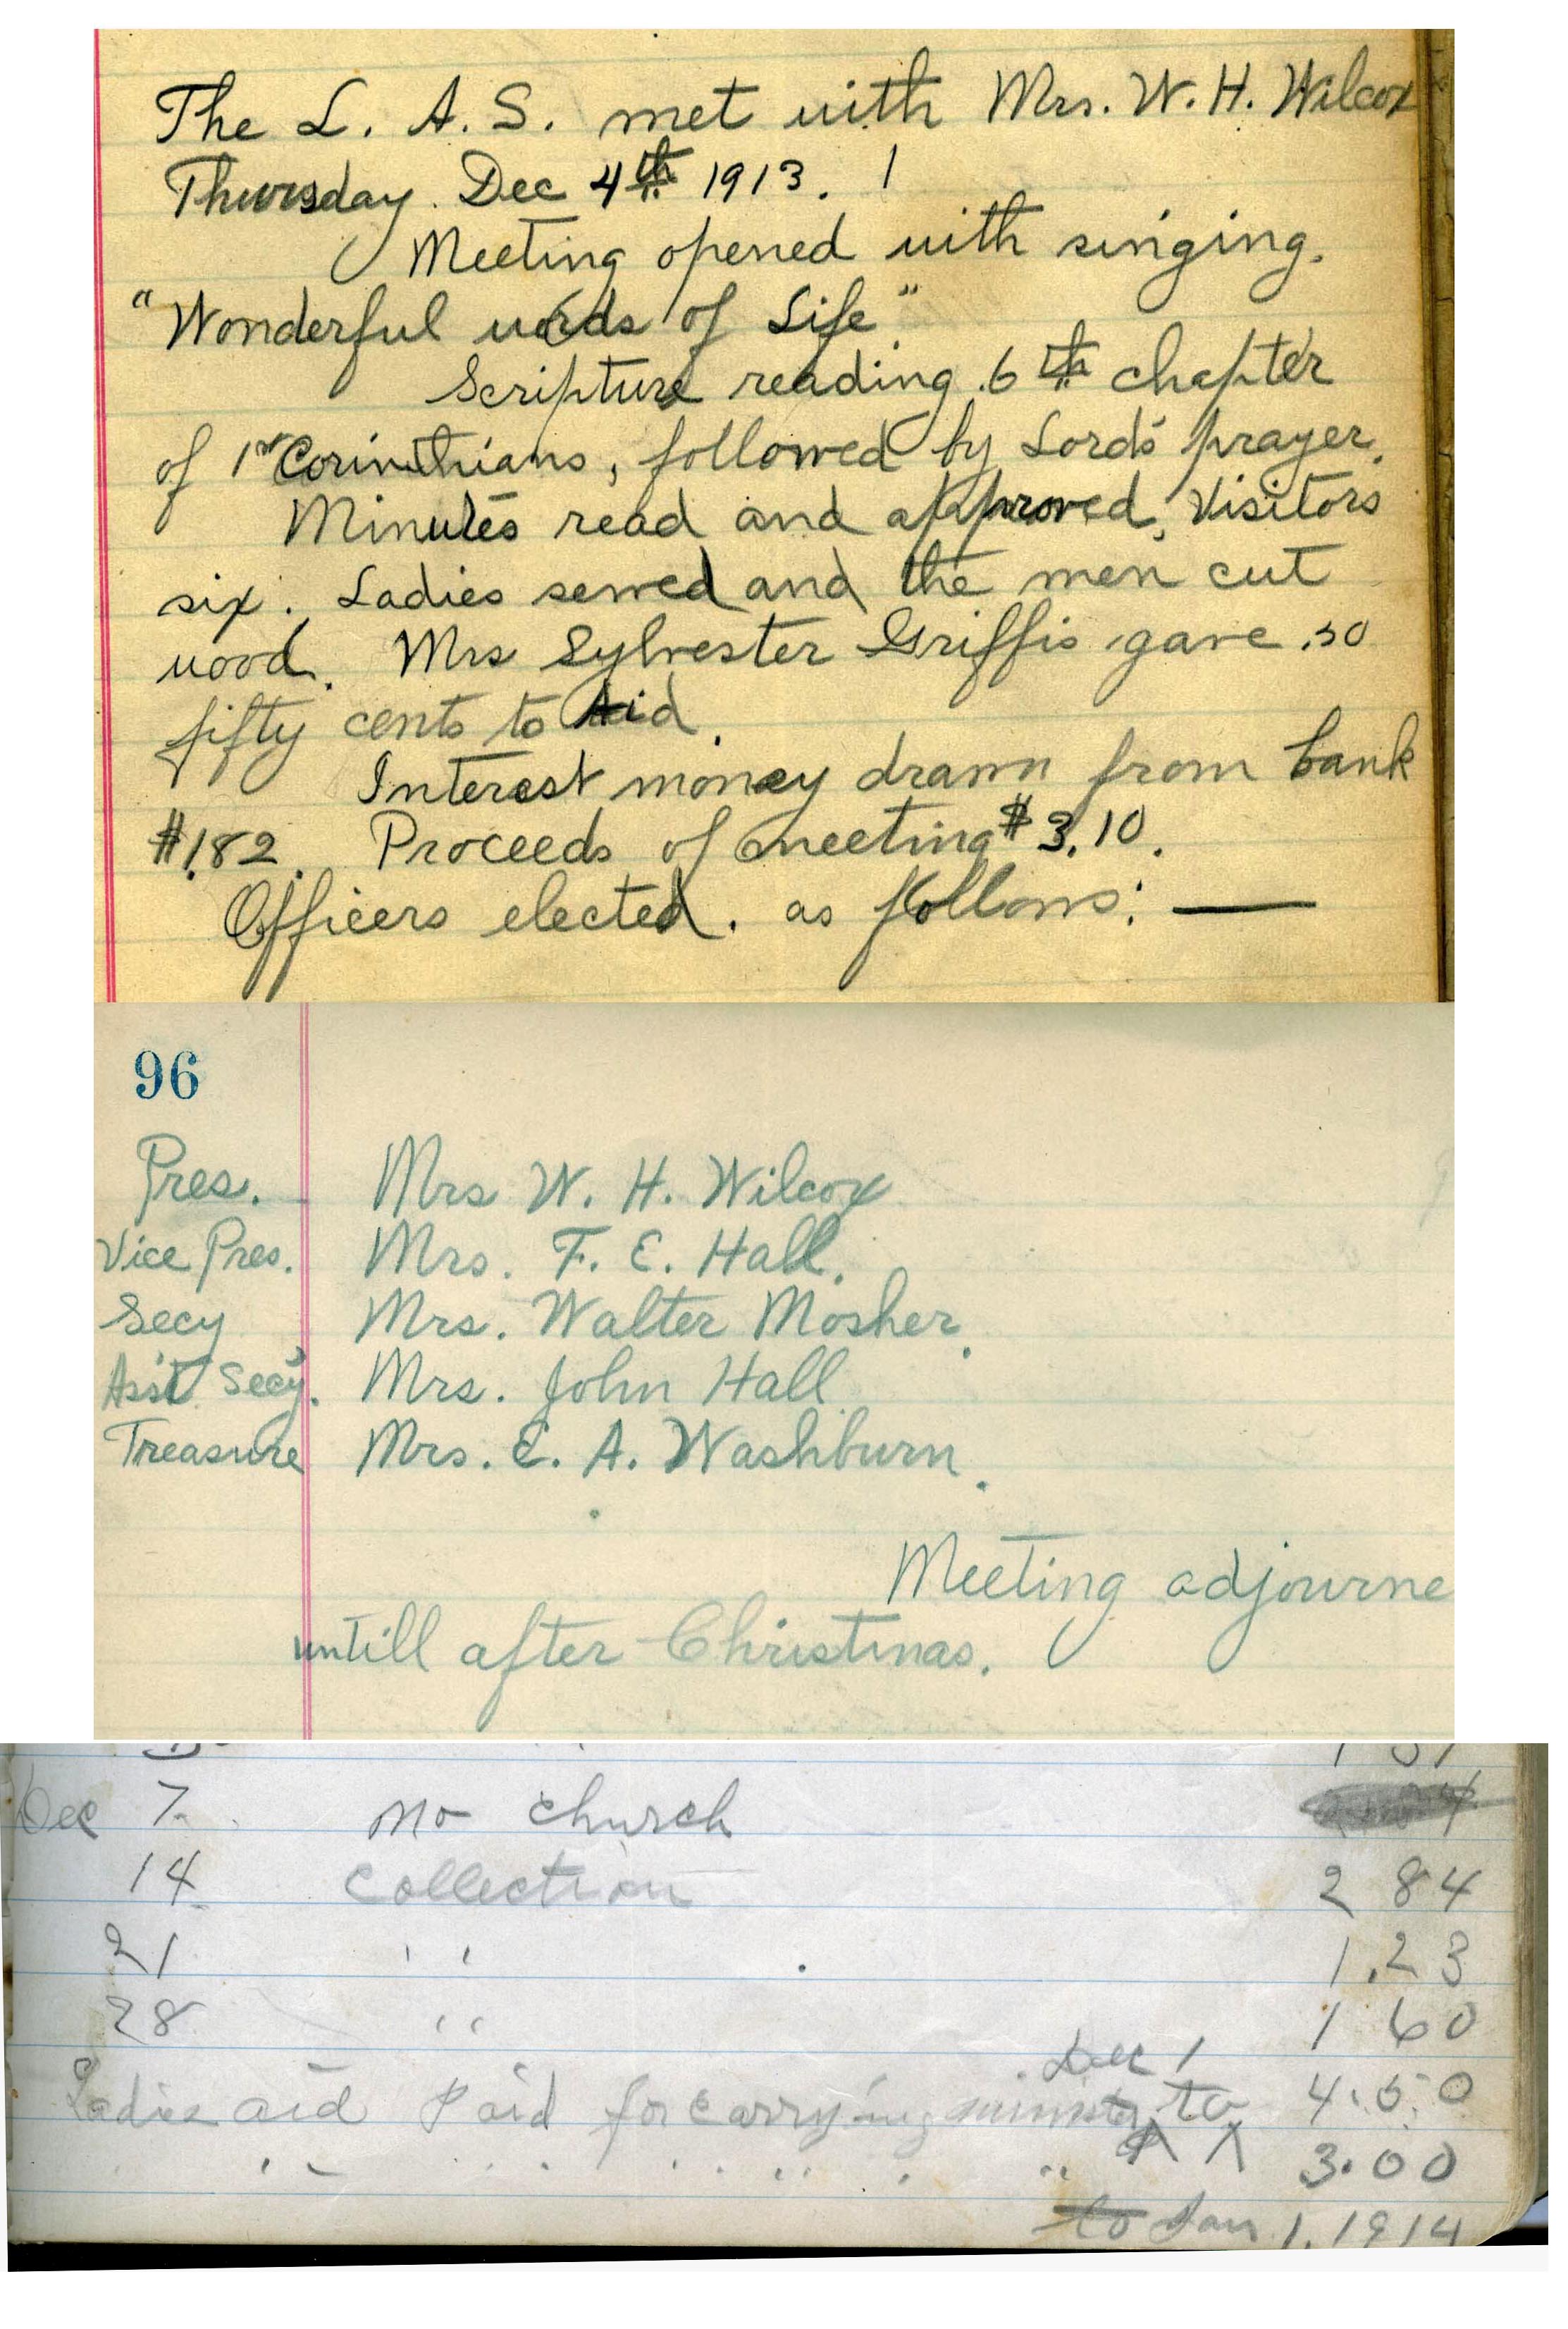 The L. A. S. met with Mrs. W. H. Wilcox
Thursday. Dec 4th 1913.
Meeting opened with singing.
"Wonderful words of Life"
Scripture reading. 6th chapter
of 1st Corinthians, followed by Lord's prayer.
Minutes read and approved, Visitors
six. Ladies sewed and the men cut
wood. Mrs Sylvester Griffis gave .50
fifty cents to Aid.
Interest money drawn from bank
#1.82. Proceeds of meeting $3.10.
Officers elected. as follows: —
96
Pres. Mrs W. H. Wilcox
Vice Pres. Mrs. F. E. Hall.
Secy Mrs. Walter Mosher.
Ass't Sec'y. Mrs. John Hall
Treasure Mrs. E. A. Washburn.
Meeting adjourne
untill after Christmas.
Dec 7 no church
14 Collection 2 84
21 " 1.23
28 " 1 60
Dec 1
Ladies aid Paid for carrying minister to 4.50
" " " " " 3.00
to Jan 1, 1914